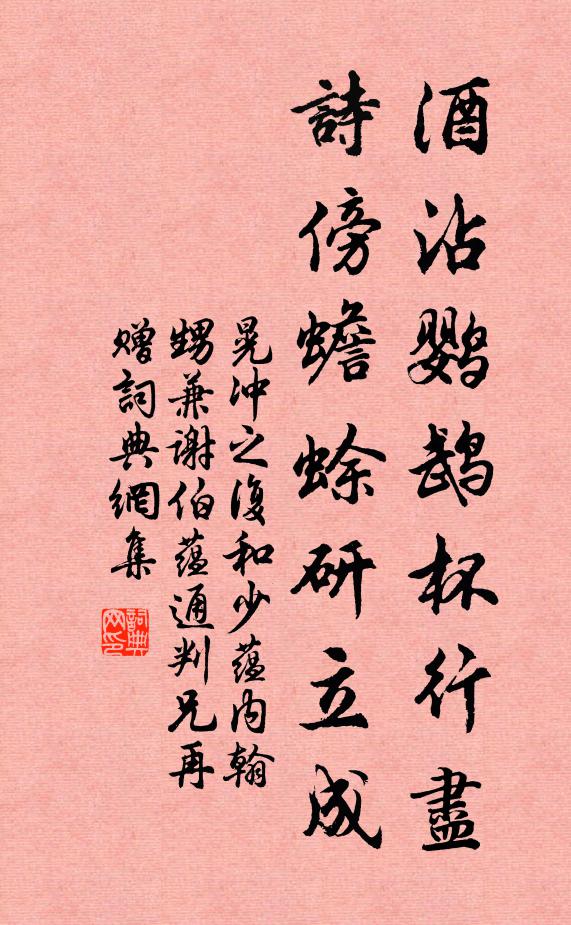 酒沾鹦鹉杯行盡
詩傍蟾蜍研立成
晁沖之復和少蘊内翰
甥兼謝伯蘊通判兄再
贈詞典網集
詞典网印